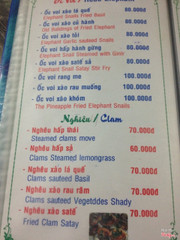 Ốc voi xào lá quế 80.000đ
Elephant Snails Fried Basil
Ốc voi xào tỏi 80.000đ
Elephant Garlic sauteed Snails
Ốc voi hấp hành gừng 80.000đ
Elephant Snail Steamed with Ginir
Ốc voi xào satế sả 80.000đ
Elephant Snail Satay Stir Fry
Ốc voi rang me 100.000đ
Ốc voi rang muối 100.000đ
Ốc voi xào khóm 100.000đ
The Pineapple Fried Elephant Snails
Nghêu / Clam
- Nghêu hấp thái 70.000đ
Steamed clams move
- Nghêu hấp sả 60.000đ
Clams Steamed lemongrass
- Nghêu xào lá quế 70.000đ
Clams sauteed Basil
- Nghêu xào rau răm 70.000đ
Clams sauteed Vegetddes Shady
- Nghêu xào satế 70.000đ
Fried Clam Satay